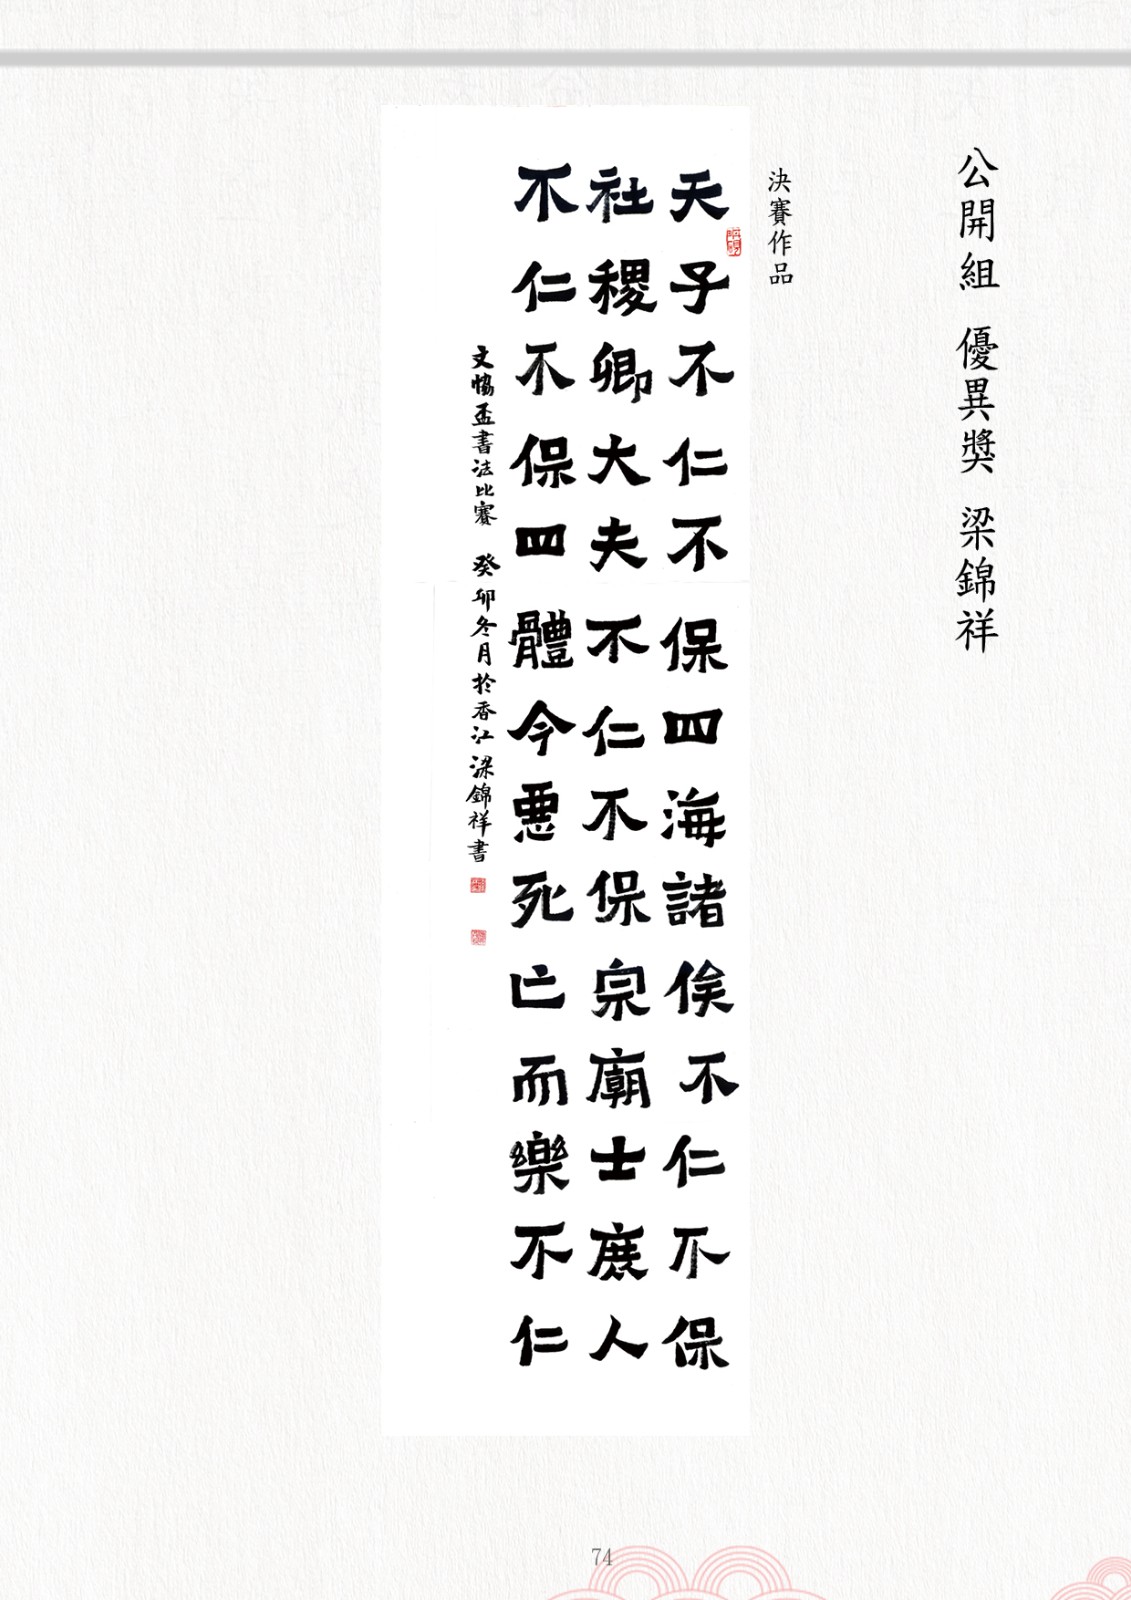 公開組 優異獎 梁錦祥
決賽作品
天子不仁不保四海諸侯不仁不保
社稷卿大夫不仁不保宗廟士庶人
不仁不保四體今惡死亡而樂不仁
文協盃書法比賽 癸卯冬月於香江梁錦祥書
74